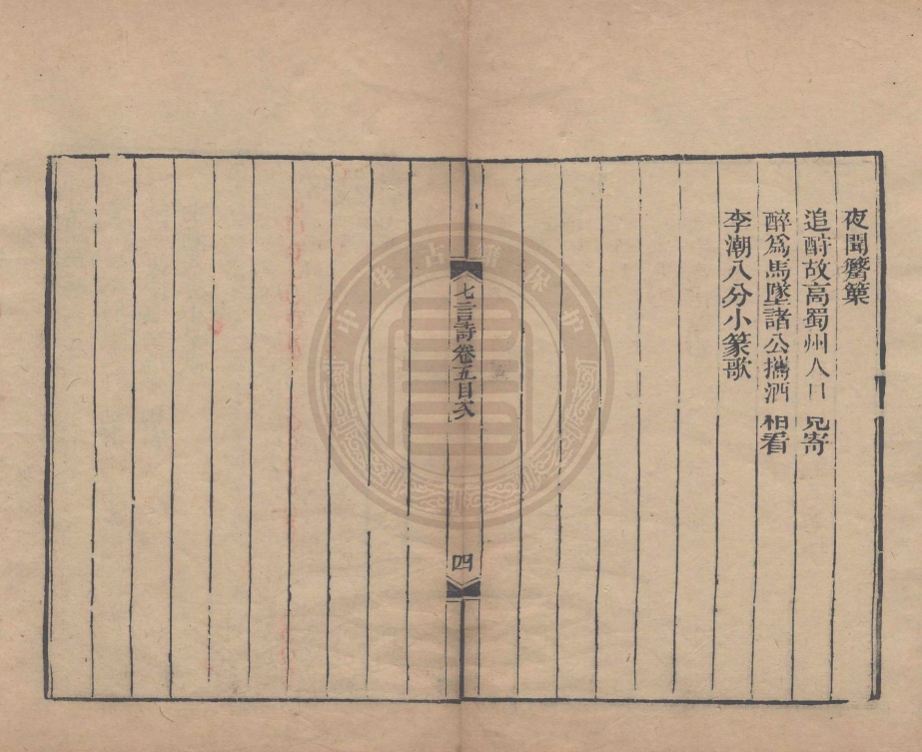 夜聞觱篥
追酧故高蜀州人日見寄
醉爲馬墜諸公攜酒相看
李潮八分小篆歌
七言詩卷五目次
四